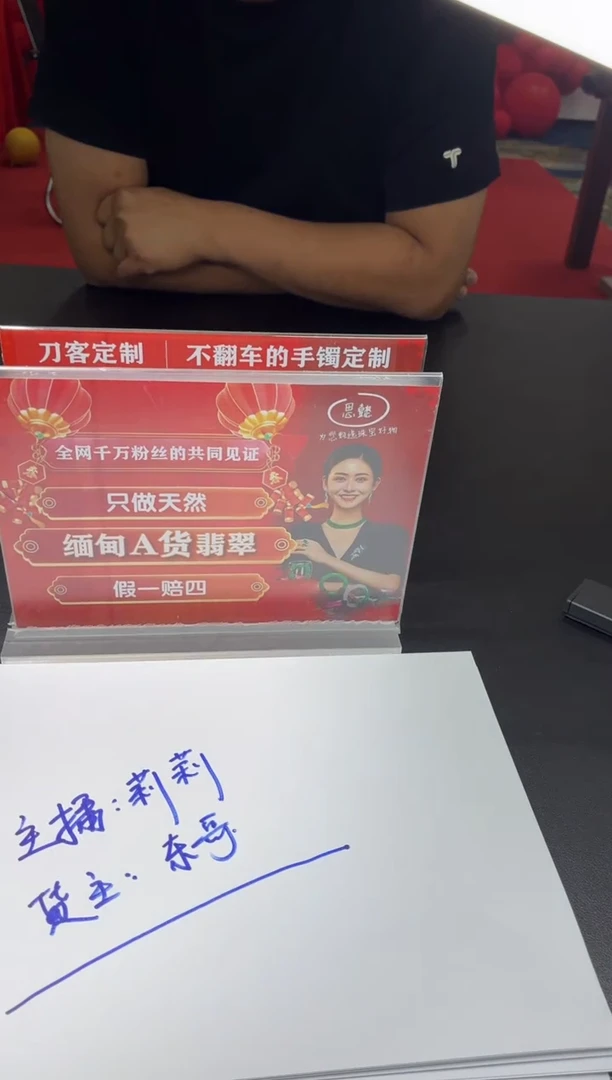 刀客定制 | 不翻车的手镯定制
思懿
全网千万粉丝的共同见证
只做天然
缅甸A货翡翠
假一赔四
主播：莉莉
货主：东哥